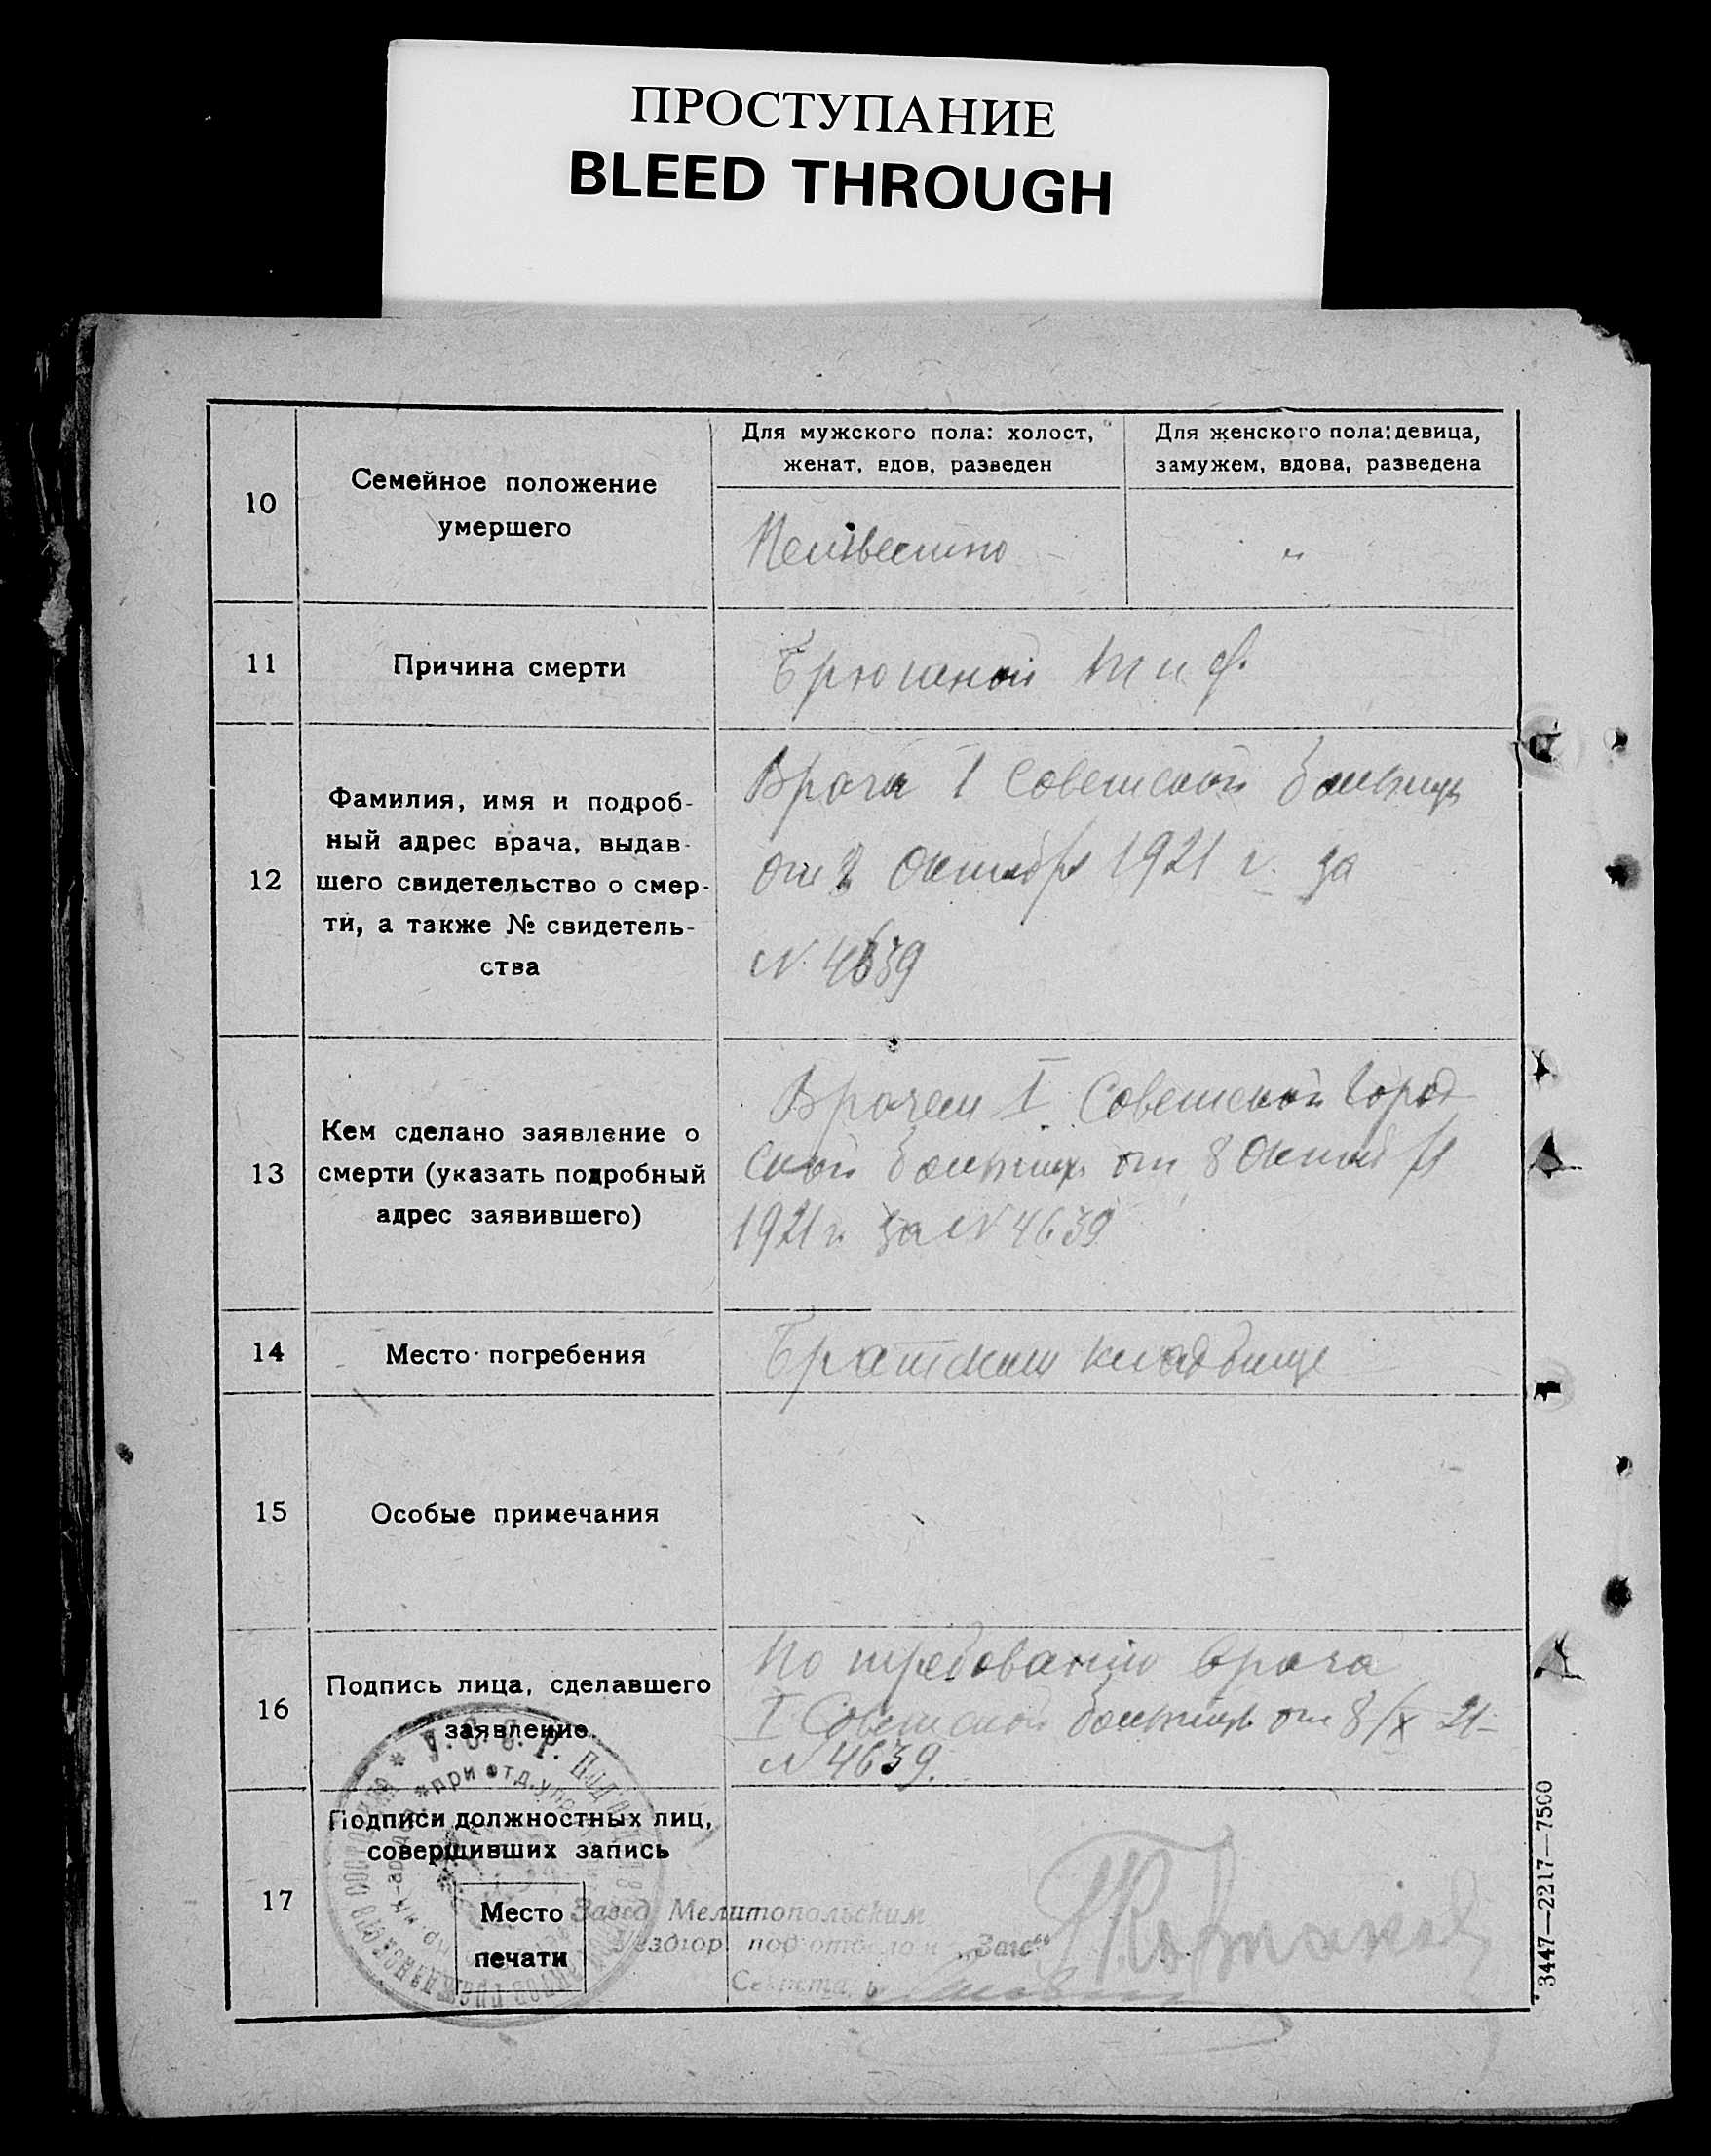 ПРОСТУПАНИЕ
BLEED THROUGH
10
Семейное положение
умершего
Для мужского пола: холост,
женат, вдов, разведен
Для женского пола: девица,
замужем, вдова, разведена
Неизвестно
"
11
Причина смерти
Брюшной тиф.
12
Фамилия, имя и подроб-
ный адрес врача, выдав-
шего свидетельство о смер-
ти, а также № свидетель-
ства
Врача 1 Советской больницы
от 8 Октября 1921 г. за
N 4639
13
Кем сделано заявление о
смерти (указать подробный
адрес заявившего)
Врачем I Советской Город
ской больницы от 8 Октября
1921 г. за N 4639
14
Место погребения
Братским кладбище
15
Особые примечания
16
Подпись лица, сделавшего
заявление.
По требованию врача
I Советской больницы от 8/X 21
N 4639.
17
Подписи должностных лиц,
совершивших запись
Место
печати
У. С. С. Р.
при отд. упр.
Завед. Мелитопольским
Уездгор. подотделом „Загс"
Секретарь
3447—2217—7500